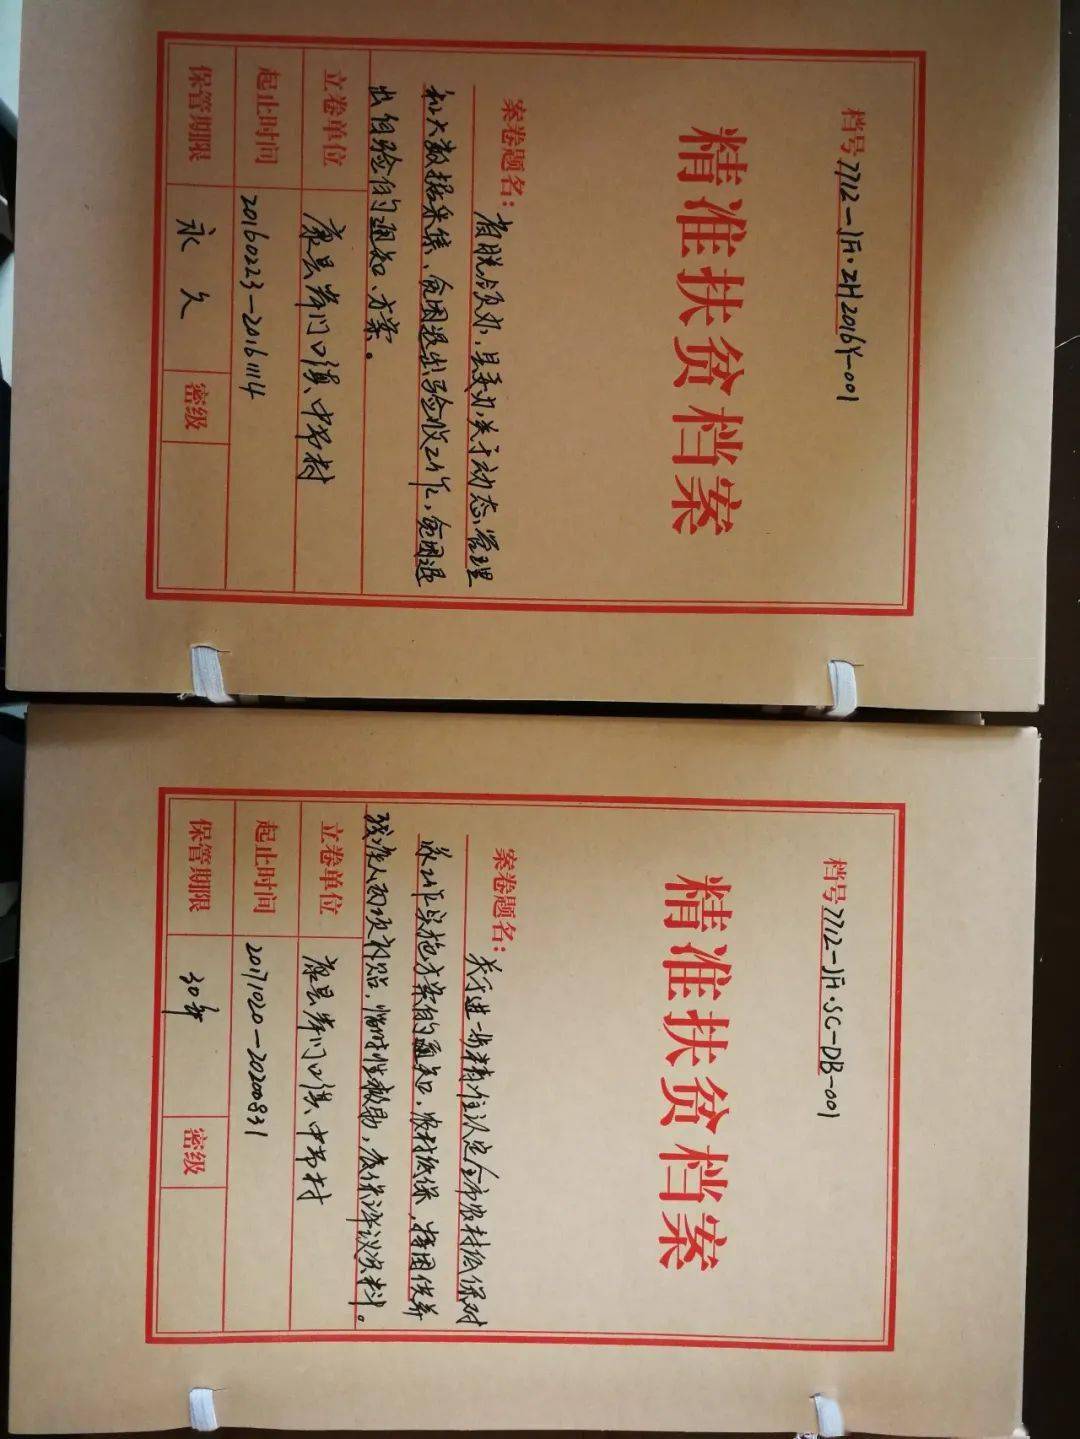 档号7712-JF·ZH2016Y-001
精准扶贫档案
案卷题名：省脱领办、县委办关于动态管理
和大数据采集、贫困退出验收工作，贫困退
出验的通知、方案。
立卷单位 康县岸门口镇中节村
起止时间 20160223-20161114
保管期限 永久 密级
档号7712-JF·SC-DB-001
精准扶贫档案
案卷题名：关于进一步精准认定全市农村低保对
象工作实施方案的通知，农村低保，特困供养
残疾人两项补贴，临时性救助，低保评议资料。
立卷单位 康县岸门口镇中节村
起止时间 20171020-20200831
保管期限 30年 密级